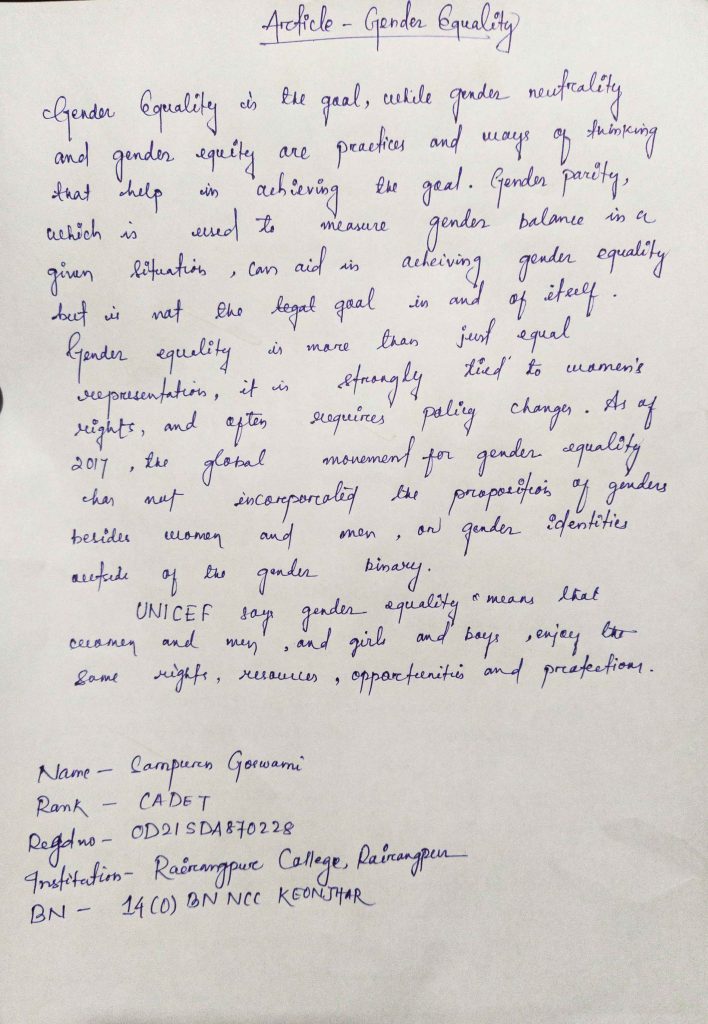 Article - Gender Equality
Gender Equality is the goal, while gender neutrality
and gender equity are practices and ways of thinking
that help in achieving the goal. Gender parity,
which is used to measure gender balance in a
given situation, can aid in acheiving gender equality
but is not the legal goal in and of itself.
Gender equality is more than just equal
representation, it is strongly tied to women's
rights, and often requires policy changes. As of
2017, the global movement for gender equality
has not incorporated the proposition of genders
besides women and men, or gender identities
outside of the gender binary.
UNICEF says gender equality "means that
women and men, and girls and boys, enjoy the
same rights, resources, opportunities and protections.
Name - Sampuren Goswami
Rank - CADET
Regdno - OD21SDA870228
Institution - Rairangpur College, Rairangpur
BN - 14(O) BN NCC KEONJHAR